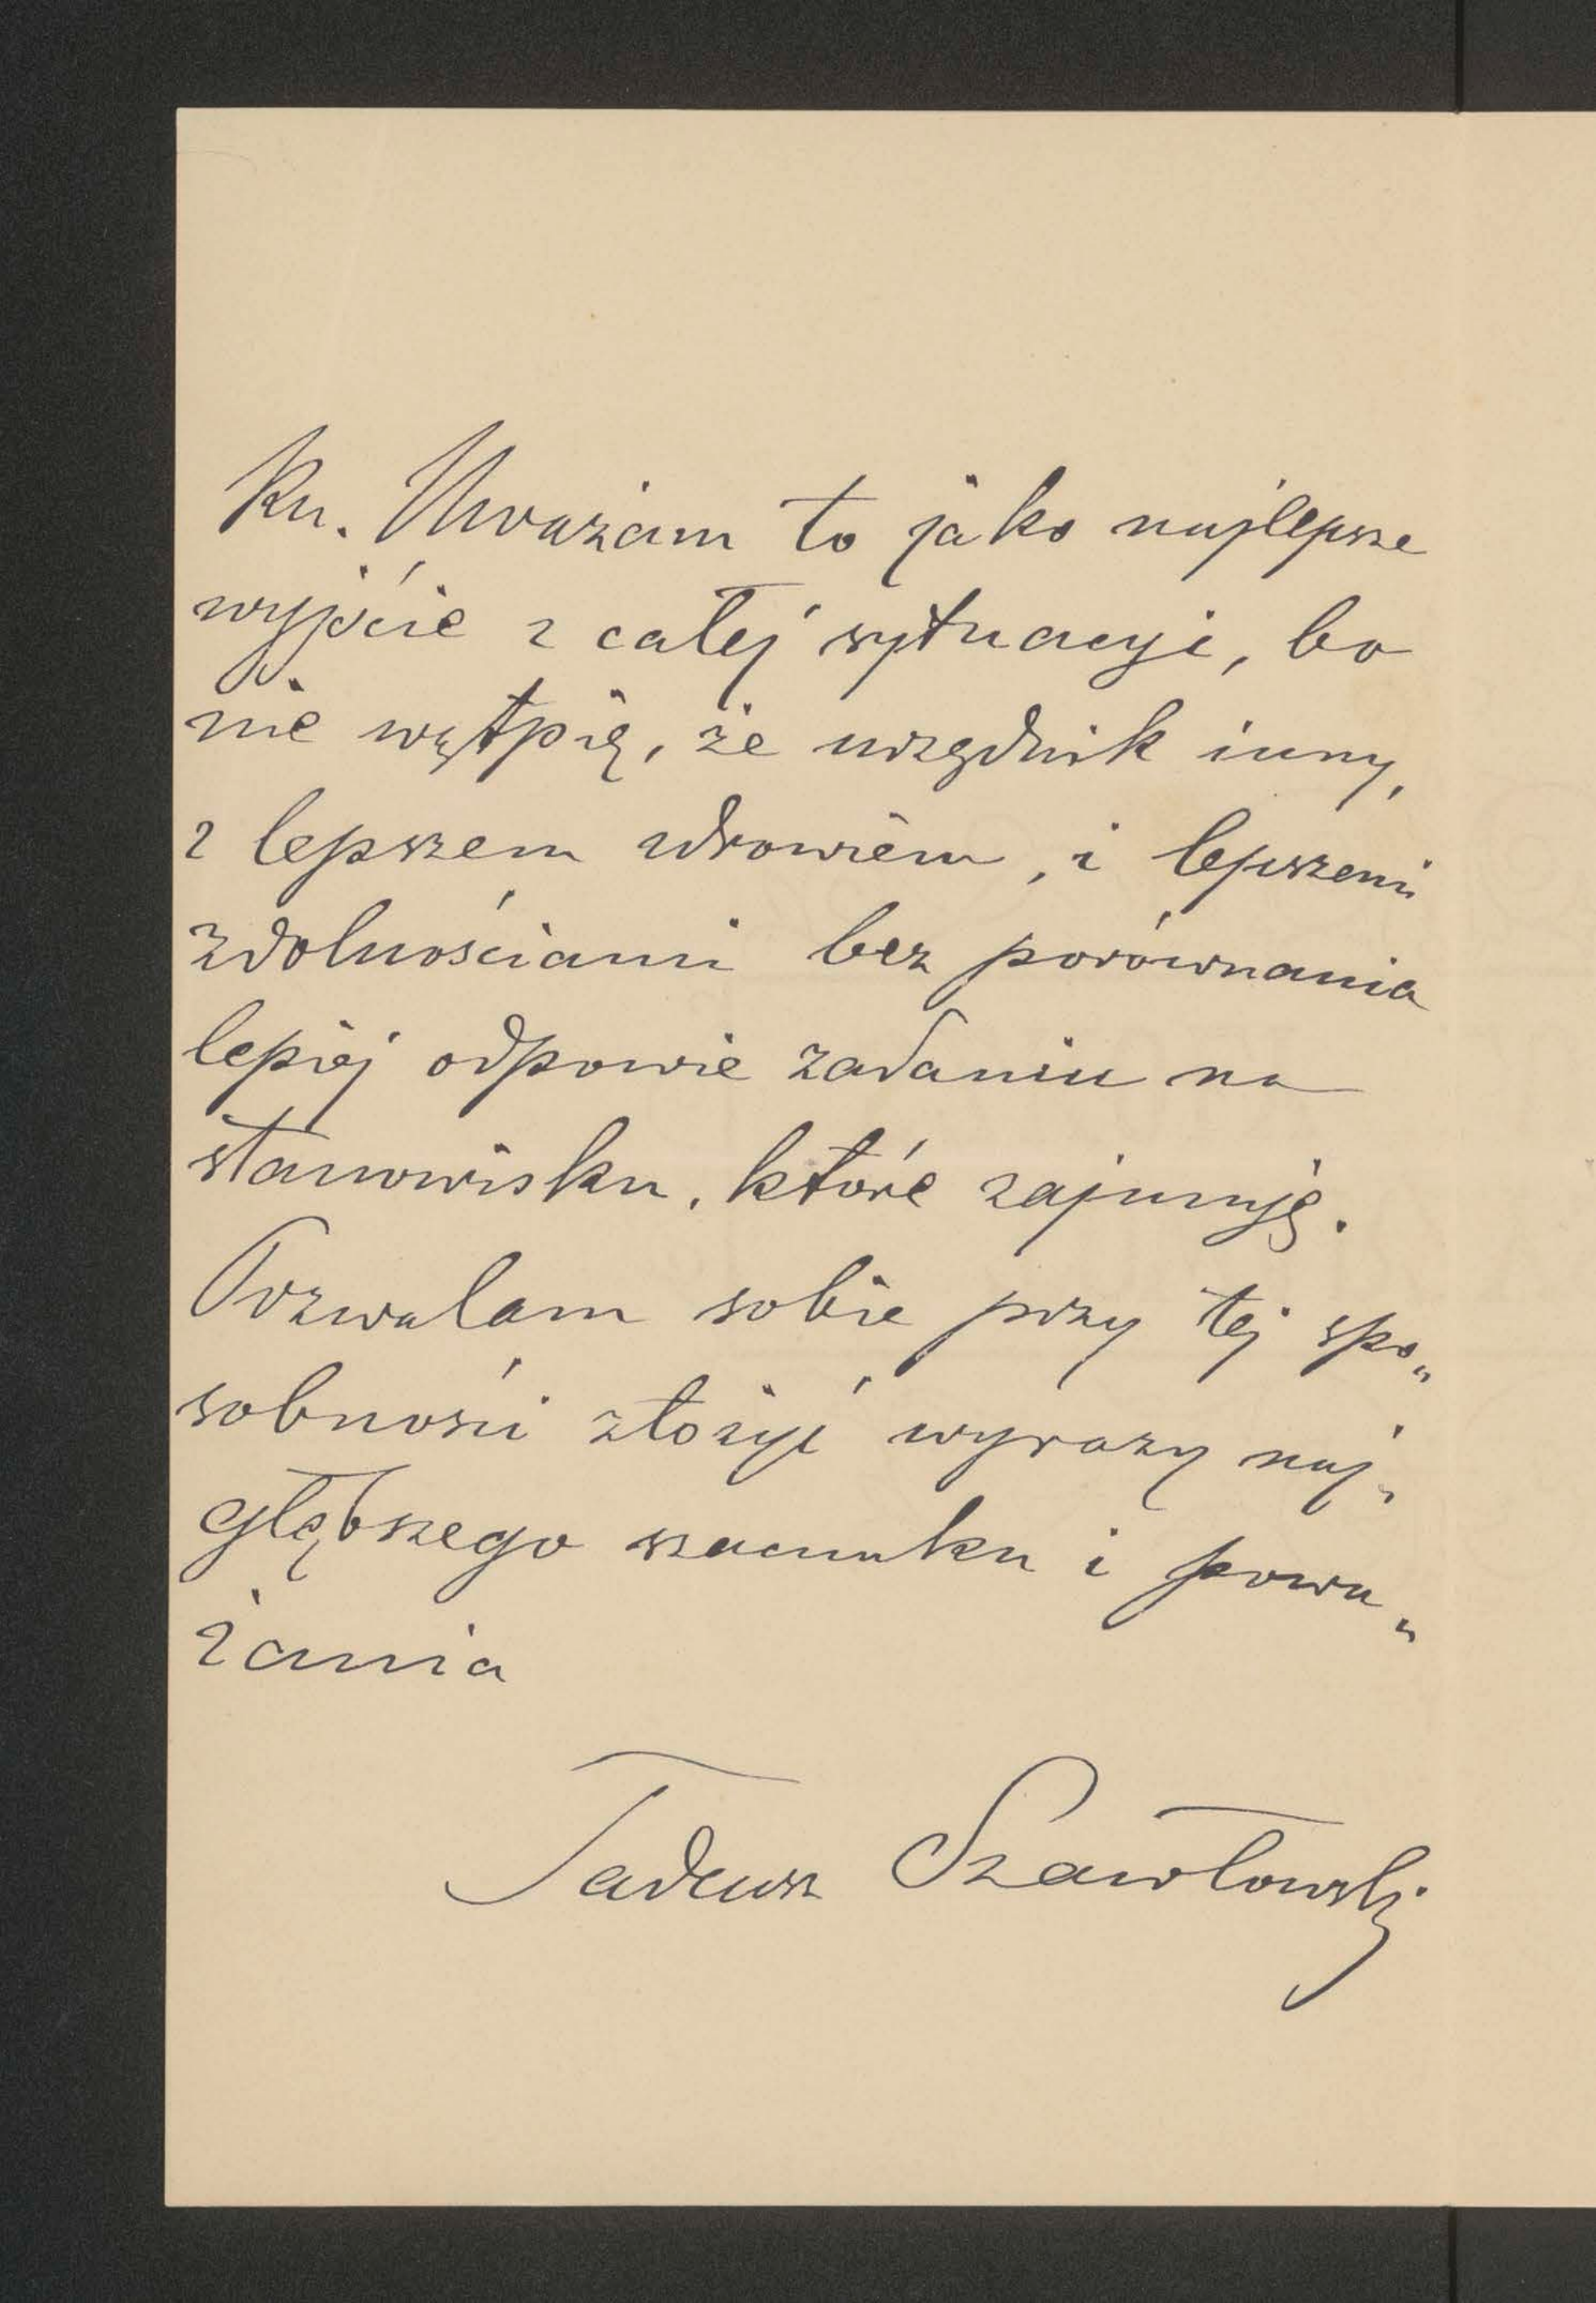 ku. Uważam to jako najlepsze
wyjście z całej sytuacyi, bo
nie wątpię, że urzędnik inny,
z lepszem zdrowiem, i lepszemi
zdolnościami bez porównania
lepiej odpowie zadaniu na
stanowisku, które zajmuję.
Pozwalam sobie przy tej spo„
sobności złożyć wyrazy naj„
głębszego szacunku i powa„
żania
Tadeusz Szawłowski